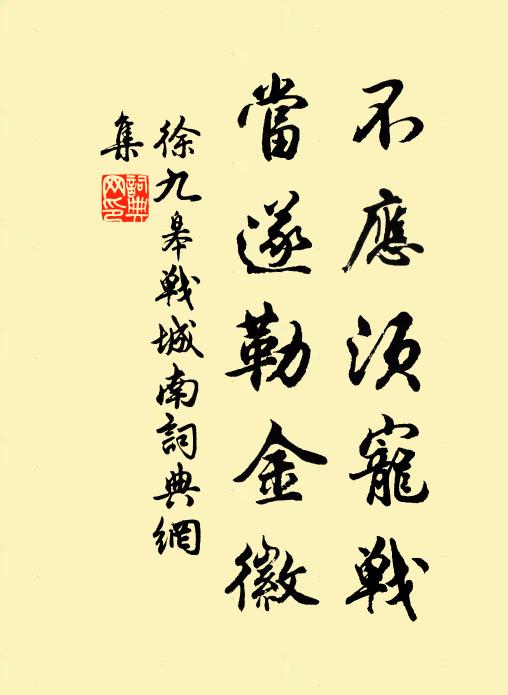 不應須寵戰
當遂勒金徽
徐九皋戰城南詞典網
集
詞典網印